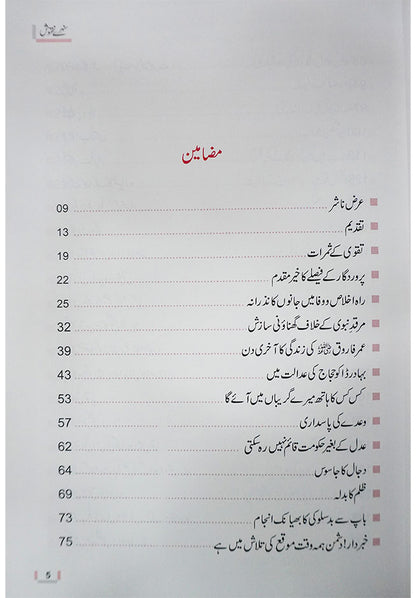 سنہرے نقوش
مضامین
عرض ناشر 09
تقدیم 13
تقویٰ کے ثمرات 19
پروردگار کے فیصلے کا خیر مقدم 22
راہ اخلاص و وفا میں جانوں کا نذرانہ 25
مرقدِ نبوی کے خلاف گھناؤنی سازش 32
عمر فاروق ﷜ کی زندگی کا آخری دن 39
بہادر ڈاکو حجاج کی عدالت میں 43
کس کس کا ہاتھ میرے گریباں میں آئے گا 53
وعدے کی پاسداری 57
عدل کے بغیر حکومت قائم نہیں رہ سکتی 62
دجال کا جاسوس 64
ظلم کا بدلہ 69
باپ سے بدسلوکی کا بھیانک انجام 73
خبردار! دشمن ہمہ وقت موقع کی تلاش میں ہے 75
5